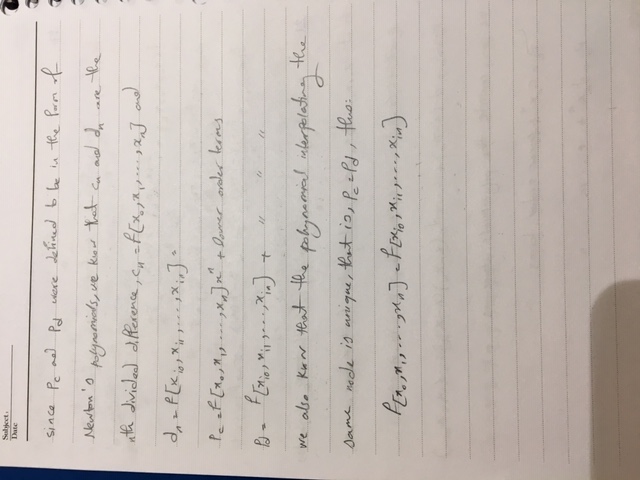 Subject:
Date
since Pc and Pd were defined to be in the form of
Newton's polynomials, we know that cn and dn are the
nth divided difference, cn = f[x0, x1, ..., xn] and
dn = f[xi0, xi1, ..., xin].
Pc = f[x0, x1, ..., xn]x^n + lower order terms
Pd = f[xi0, xi1, ..., xin] + " " "
we also know that the polynomial interpolating the
same node is unique, that is, Pc = Pd, thus:
f[x0, x1, ..., xn] = f[xi0, xi1, ..., xin]